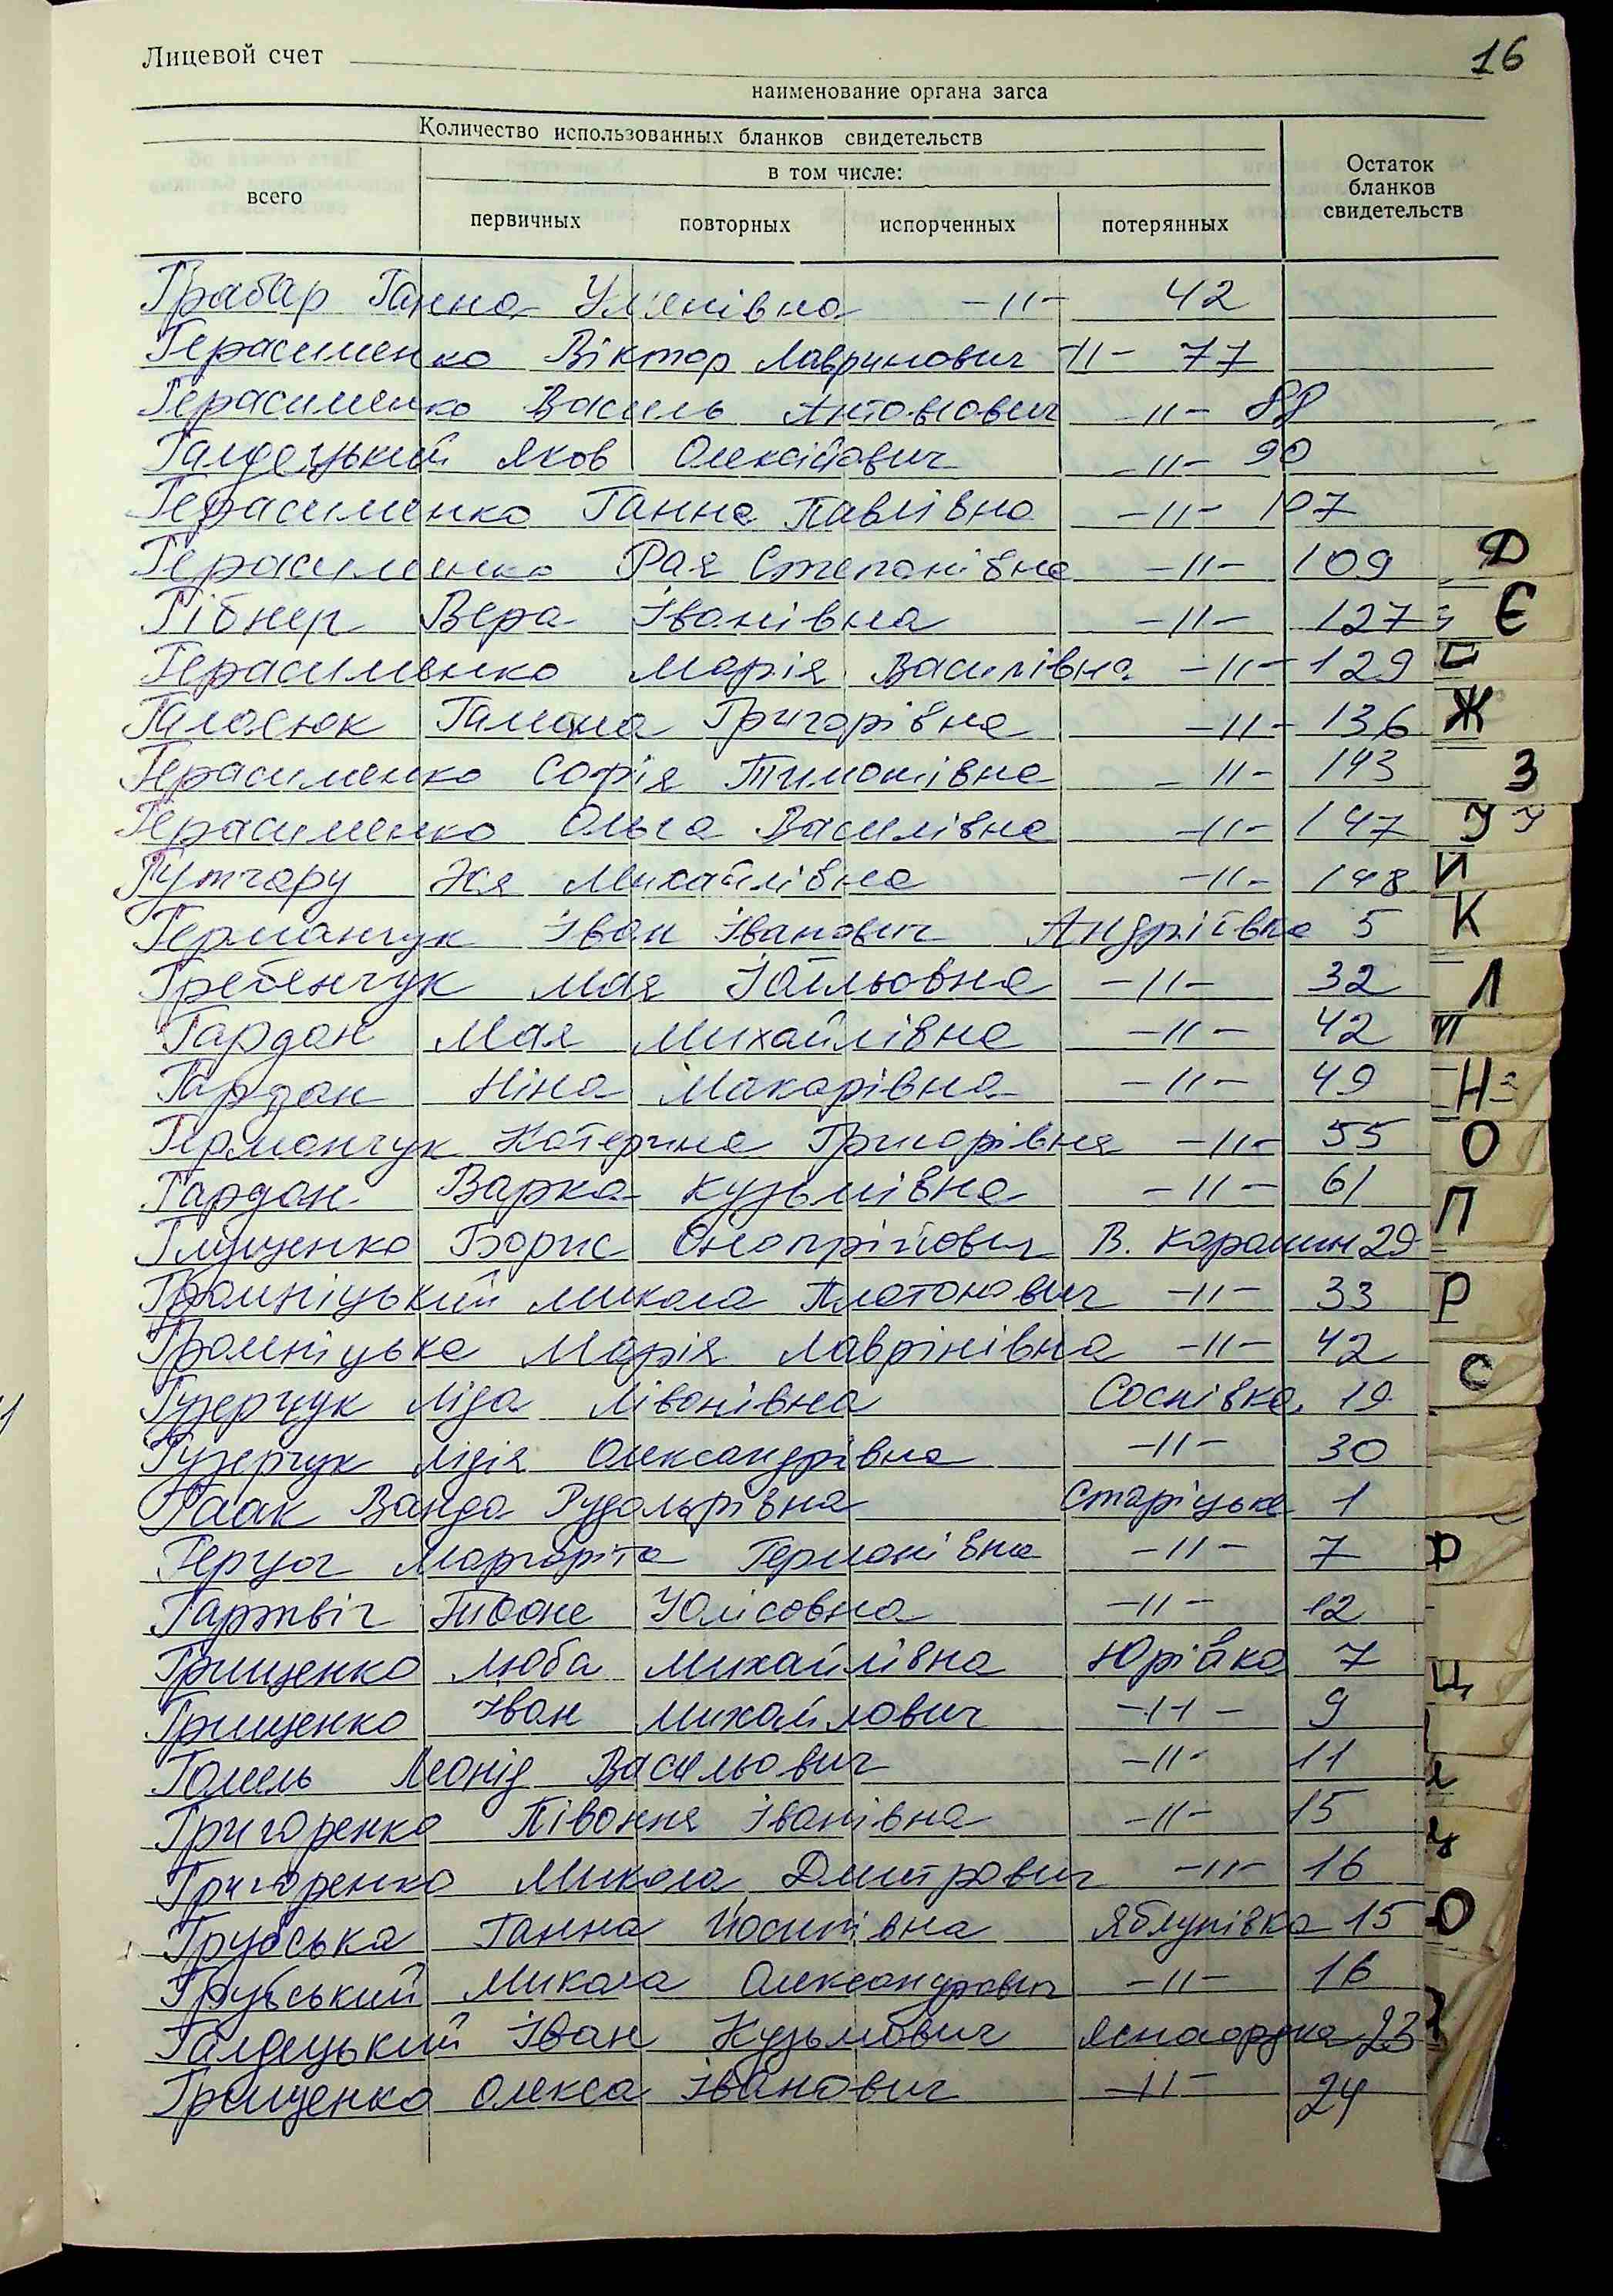 16
Лицевой счет
наименование органа загса
Количество использованных бланков свидетельств
в том числе:
Остаток бланков свидетельств
всего
первичных повторных испорченных потерянных
Грабар Ганна Улянівна -11- 42
Герасименко Віктор Лавринович -11- 77
Герасименко Василь Антонович -11- 88
Галдецький Яков Олексійович -11- 90
Герасименко Ганна Павлівна -11- 107
Герасименко Рая Степанівна -11- 109
Гібнер Вера Іванівна -11- 127
Герасименко Марія Василівна -11- 129
Галасюк Галина Григорівна -11- 136
Герасименко Софія Тимошівна -11- 143
Герасименко Ольга Василівна -11- 147
Гутчару Михайлівна -11- 148
Германчук Іван Іванович Андріївка 5
Гребенчук Мая -11- 32
Гардан Мая Михайлівна -11- 42
Гардан Ніна Макарівна -11- 49
Германчук Катерина Григорівня -11- 55
Гардан Варка Кузьмівна -11- 61
Глущенко Борис Онопрійович В. Корашин 29
Громніцький Микола Платонович -11- 33
Громніцька Марія Лаврінівна -11- 42
Гузерчук Ліза Лівонівна Соснівка 19
Гузерчук Лідія Олександрівна -11- 30
Гаак Ванда Рудольфівна Старіцьке 1
Герцог Маргаріта Германівна -11- 7
Гартвіг Юлісовна -11- 12
Грищенко Люба Михайлівна Юрівка 7
Грищенко Іван Михайлович -11- 9
Гомель Леонід Васильович -11- 11
Григоренко Півоння Іванівна -11- 15
Григоренко Микола Дмитрович -11- 16
Грубська Ганна Йосипівна Яблунівка 15
Грубський Микола Олександрович -11- 16
Галдецький Іван Кузьмович Ясногородка 23
Грищенко Олекса Іванович -11- 24
Д
Є
Ж
З
У
И
К
Л
М
Н
О
П
Р
С
Ф
Ц